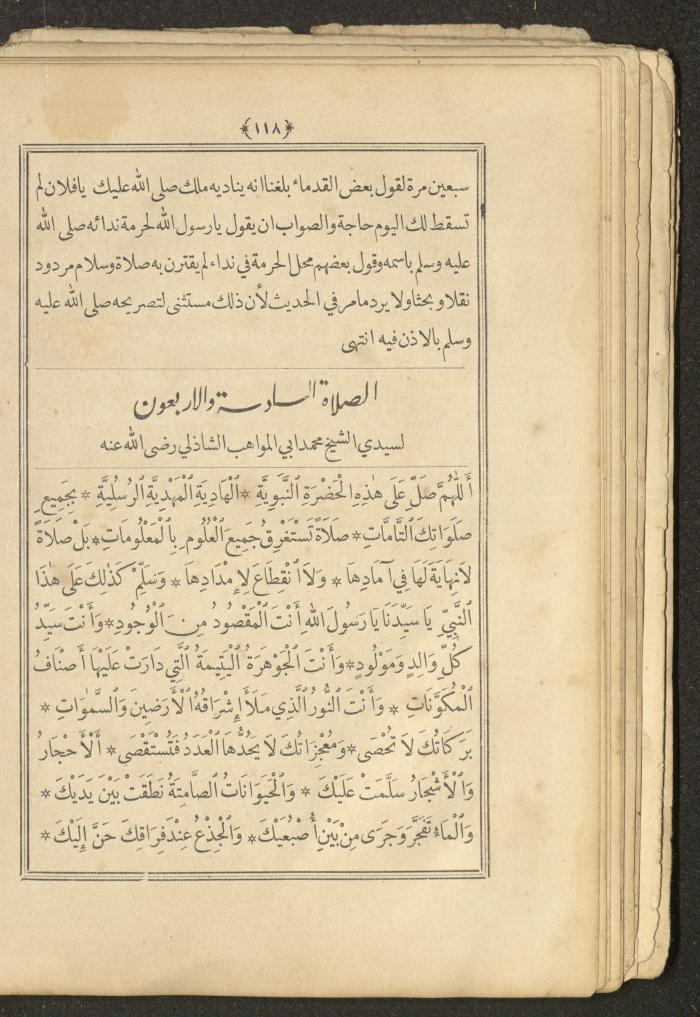 ﴿١١٨﴾
سبعين مرة لقول بعض القدماء بلغنا انه يناديه ملك صلى الله عليك يا فلان لم
تسقط لك اليوم حاجة والصواب ان يقول يا رسول الله لحرمة ندائه صلى الله
عليه وسلم باسمه وقول بعضهم محل الحرمة في نداء لم يقترن به صلاة وسلام مردود
نقلا وبحثا ولا يرد ما مر في الحديث لأن ذلك مستثنى لتصريحه صلى الله عليه
وسلم بالاذن فيه انتهى
الصلاة السادسة والاربعون
لسيدي الشيخ محمد ابي المواهب الشاذلي رضى الله عنه
أَللّٰهُمَّ صَلِّ عَلَى هٰذِهِ الْحَضْرَةِ النَّبَوِيَّةِ * الْهَادِيَةِ الْمَهْدِيَّةِ الرُّسُلِيَّةِ * بِجَمِيعِ
صَلَوَاتِكَ التَّامَّاتِ * صَلَاةً تَسْتَغْرِقُ جَمِيعَ الْعُلُومِ بِالْمَعْلُومَاتِ * بَلْ صَلَاةً
لَا نِهَايَةَ لَهَا فِي آمَادِهَا * وَلَا انْقِطَاعَ لِإِمْدَادِهَا * وَسَلِّمْ كَذٰلِكَ عَلَى هٰذَا
النَّبِيِّ يَا سَيِّدَنَا يَا رَسُولَ اللهِ أَنْتَ الْمَقْصُودُ مِنَ الْوُجُودِ * وَأَنْتَ سَيِّدُ
كُلِّ وَالِدٍ وَمَوْلُودٍ * وَأَنْتَ الْجَوْهَرَةُ الْيَتِيمَةُ الَّتِي دَارَتْ عَلَيْهَا أَصْنَافُ
الْمُكَوَّنَاتِ * وَأَنْتَ النُّورُ الَّذِي مَلَأَ إِشْرَاقُهُ الْأَرَضِينَ وَالسَّمٰوَاتِ *
بَرَكَاتُكَ لَا تُحْصَى * وَمُعْجِزَاتُكَ لَا يَحُدُّهَا الْعَدَدُ فَتُسْتَقْصَى * أَلْأَحْجَارُ
وَالْأَشْجَارُ سَلَّمَتْ عَلَيْكَ * وَالْحَيَوَانَاتُ الصَّامِتَةُ نَطَقَتْ بَيْنَ يَدَيْكَ *
وَالْمَاءُ تَفَجَّرَ وَجَرَى مِنْ بَيْنِ أُصْبُعَيْكَ * وَالْجِذْعُ عِنْدَ فِرَاقِكَ حَنَّ إِلَيْكَ *